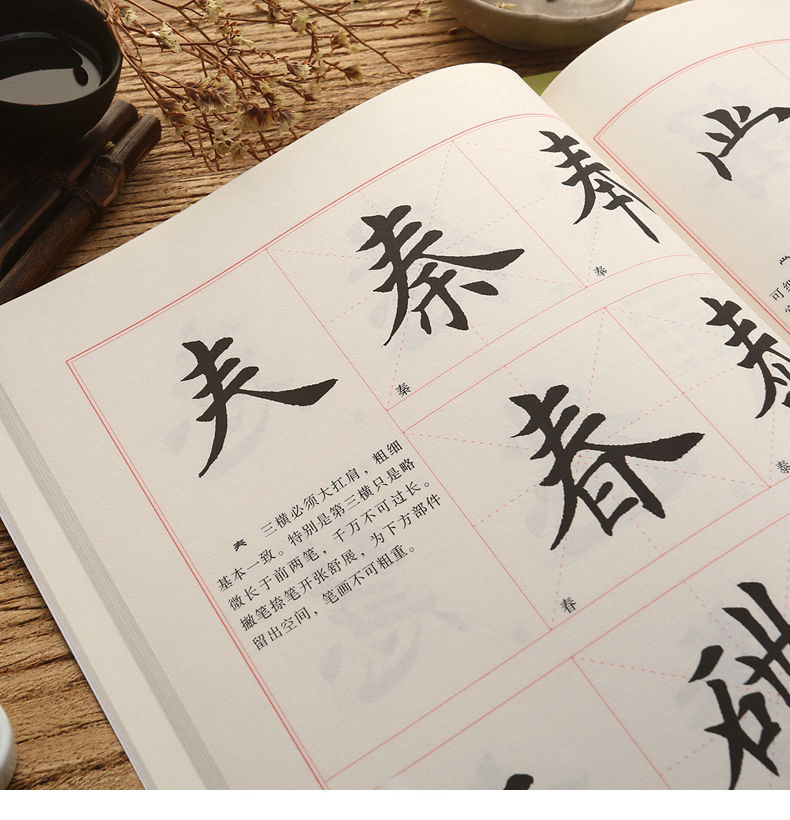 𡗗
秦
奉
秦
奉
𡗗 三横必须大扛肩，粗细
基本一致。特别是第三横只是略
微长于前两笔，千万不可过长。
撇笔捺笔开张舒展，为下方部件
留出空间，笔画不可粗重。
春
泰
春
泰
可细